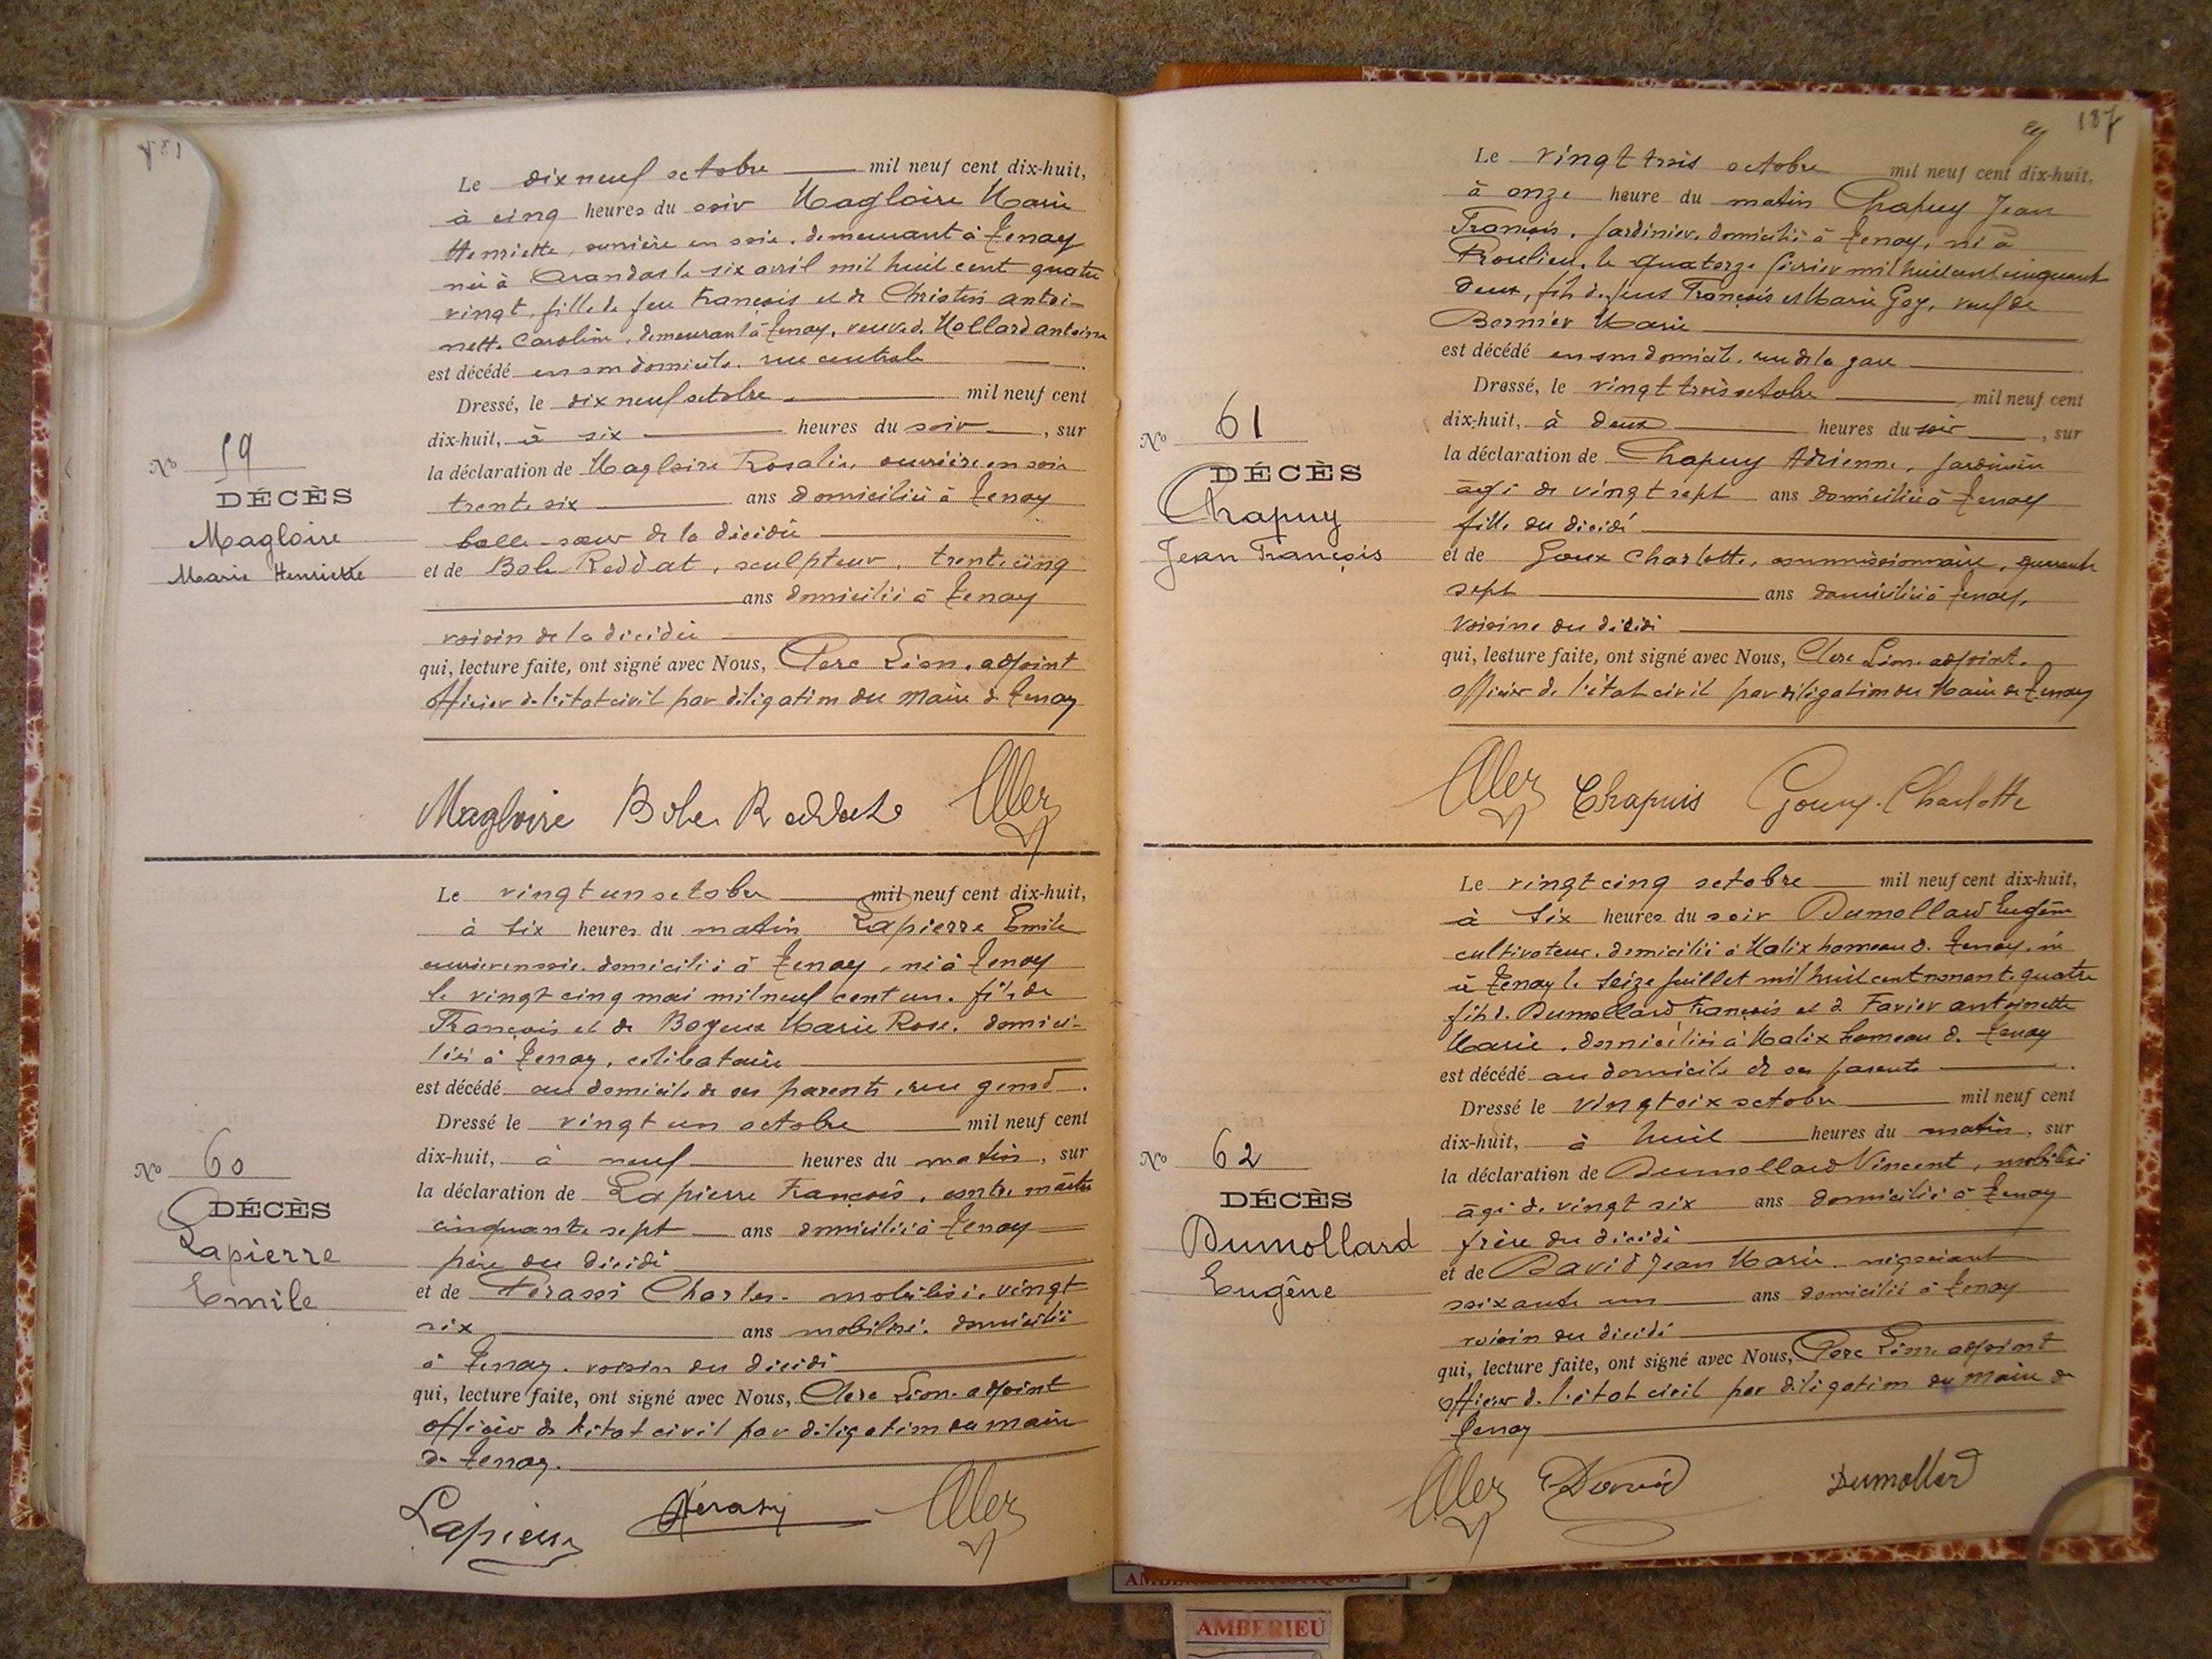 Le dix neuf octobre mil neuf cent dix-huit,
à cinq heures du soir Magloire Marie
Henriette, ouvrière en soie, demeurant à Tenay
née à Arandas le six avril mil huit cent quatre
vingt, fille de feu François et de Christin Antoi-
nette Caroline, demeurant à Tenay, veuve de Mollard Antoine
est décédé en son domicile, rue centrale
Dressé, le dix neuf octobre mil neuf cent
dix-huit, à six heures du soir, sur
la déclaration de Magloire Rosalie, ouvrière en soie
trente six ans domiciliée à Tenay
belle-sœur de la décédée
et de Bole Reddat, sculpteur, trente cinq
ans domicilié à Tenay
voisin de la décédée
qui, lecture faite, ont signé avec Nous, Clerc Léon, adjoint
officier de l'état civil par délégation du Maire de Tenay
No 59
DÉCÈS
Magloire
Marie Henriette
Magloire Bole Reddat
Le vingt un octobre mil neuf cent dix-huit,
à six heures du matin Lapierre Emile
ouvrier en soie, domicilié à Tenay, né à Tenay
le vingt cinq mai mil neuf cent un, fils de
François et de Boyeux Marie Rose, domici-
liés à Tenay, célibataire
est décédé au domicile de ses parents, rue
Dressé le vingt un octobre mil neuf cent
dix-huit, à neuf heures du matin, sur
la déclaration de Lapierre François, contre maître
cinquante sept ans domicilié à Tenay
père du décédé
et de Férassi Charles, mobilisé, vingt
six ans mobilisé, domicilié
à Tenay, voisin du décédé
qui, lecture faite, ont signé avec Nous, Clerc Léon, adjoint
officier de l'état civil par délégation du maire
de Tenay.
No 60
DÉCÈS
Lapierre
Emile
Lapierre
187
Le vingt trois octobre mil neuf cent dix-huit,
à onze heure du matin Chapuy Jean
François, jardinier, domicilié à Tenay, né à
Proulieu, le quatorze février mil huit cent cinquante
deux, fils de feus François et Marie Goy, veuf de
Bornier Marie
est décédé en son domicile, rue de la gare
Dressé, le vingt trois octobre mil neuf cent
dix-huit, à deux heures du soir, sur
la déclaration de Chapuy Adrienne, jardinière
âgée de vingt sept ans domiciliée à Tenay
fille du décédé
et de Goux Charlotte, commissionnaire, quarante
sept ans domiciliée à Tenay,
voisine du décédé
qui, lecture faite, ont signé avec Nous, Clerc Léon adjoint,
officier de l'état civil par délégation du Maire de Tenay
No 61
DÉCÈS
Chapuy
Jean François
Chapuis Charlotte
Le vingt cinq octobre mil neuf cent dix-huit,
à six heures du soir Dumollard Eugène
cultivateur, domicilié à Malix hameau de Tenay, né
à Tenay le seize juillet mil huit cent nonante quatre
fils de Dumollard François et de Favier Antoinette
Marie, domiciliés à Malix hameau de Tenay
est décédé au domicile de ses parents
Dressé le vingt six octobre mil neuf cent
dix-huit, à huit heures du matin, sur
la déclaration de Dumollard Vincent, mobilisé
âgé de vingt six ans domicilié à Tenay
frère du décédé
et de David Jean Marie, négociant
soixante un ans domicilié à Tenay
voisin du décédé
qui, lecture faite, ont signé avec Nous, Clerc Léon, adjoint
officier de l'état civil par délégation du Maire de
Tenay
No 62
DÉCÈS
Dumollard
Eugêne
David Dumollard
AMBERIEU